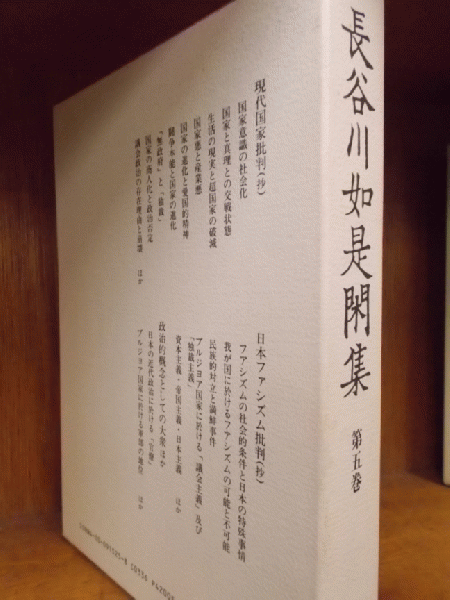 長谷川如是閑集
第五巻
現代国家批判(抄)
国家意識の社会化
国家と真理との交戦状態
生活の現実と超国家の破滅
国家悪と産業悪
国家の進化と愛国的精神
闘争本能と国家の進化
「無政府」と「独裁」
国家の商人化と政治否定
議会政治の存在理由と崩壊 ほか
日本ファシズム批判(抄)
ファシズムの社会的条件と日本の特殊事情
我が国に於けるファシズムの可能と不可能
民族的対立と満鮮事件
ブルジョア国家に於ける「議会主義」及び
「独裁主義」
資本主義・帝国主義・日本主義 ほか
政治的概念としての大衆 ほか
日本の近代政治に於ける「官僚」
ブルジョア国家に於ける軍部の地位 ほか